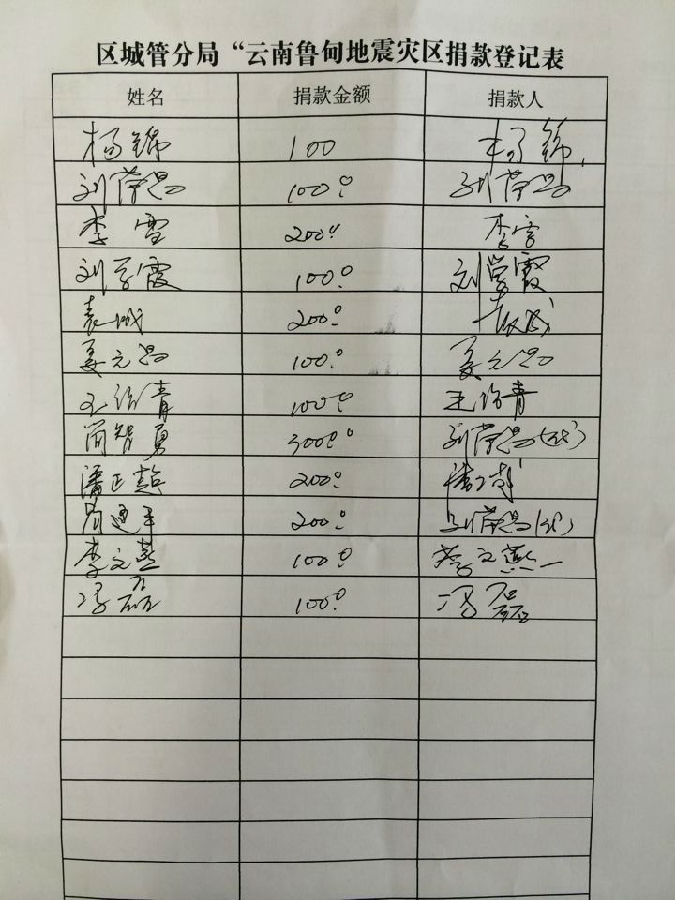 区城管分局“云南鲁甸地震灾区捐款登记表
姓名 捐款金额 捐款人
杨锦 100 杨锦
刘荣昌 100.00 刘荣昌
李雪 200.00 李雪
刘学霞 100.00 刘学霞
袁城 200.00 袁城
姜元昌 100.00 姜元昌
王绍青 100.00 王绍青
简智勇 300.00 刘荣昌(代)
潘正 200.00 潘正
周建平 200.00 刘荣昌(代)
李文燕 100.00 李文燕
冯磊 100.00 冯磊